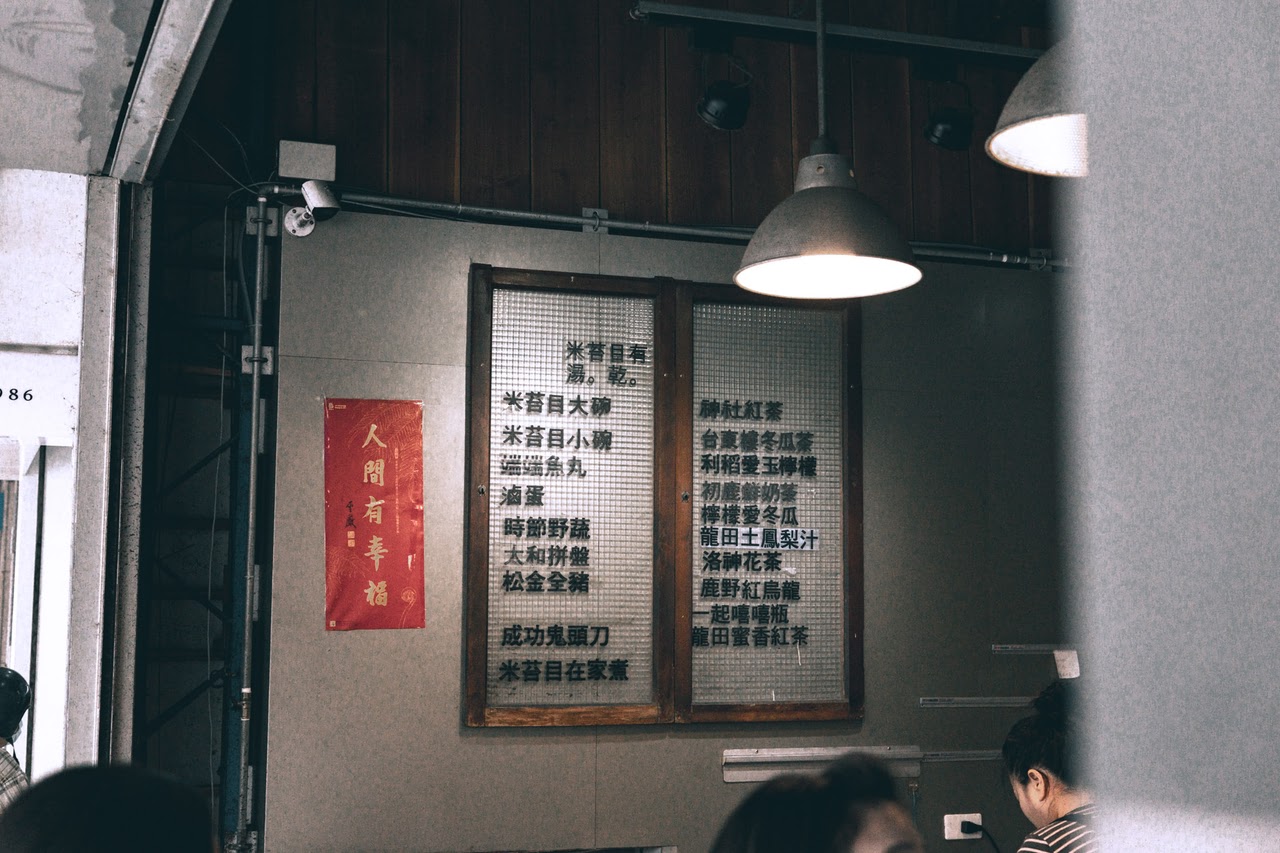 986
人間有幸福
千歲
米苔目有
湯。乾。
米苔目大碗
米苔目小碗
端端魚丸
滷蛋
時節野蔬
太和拼盤
松金全豬
成功鬼頭刀
米苔目在家煮
神社紅茶
台東縷冬瓜茶
利稻愛玉檸檬
初鹿鮮奶茶
檸檬愛冬瓜
龍田土鳳梨汁
洛神花茶
鹿野紅烏龍
一起嘻嘻瓶
龍田蜜香紅茶